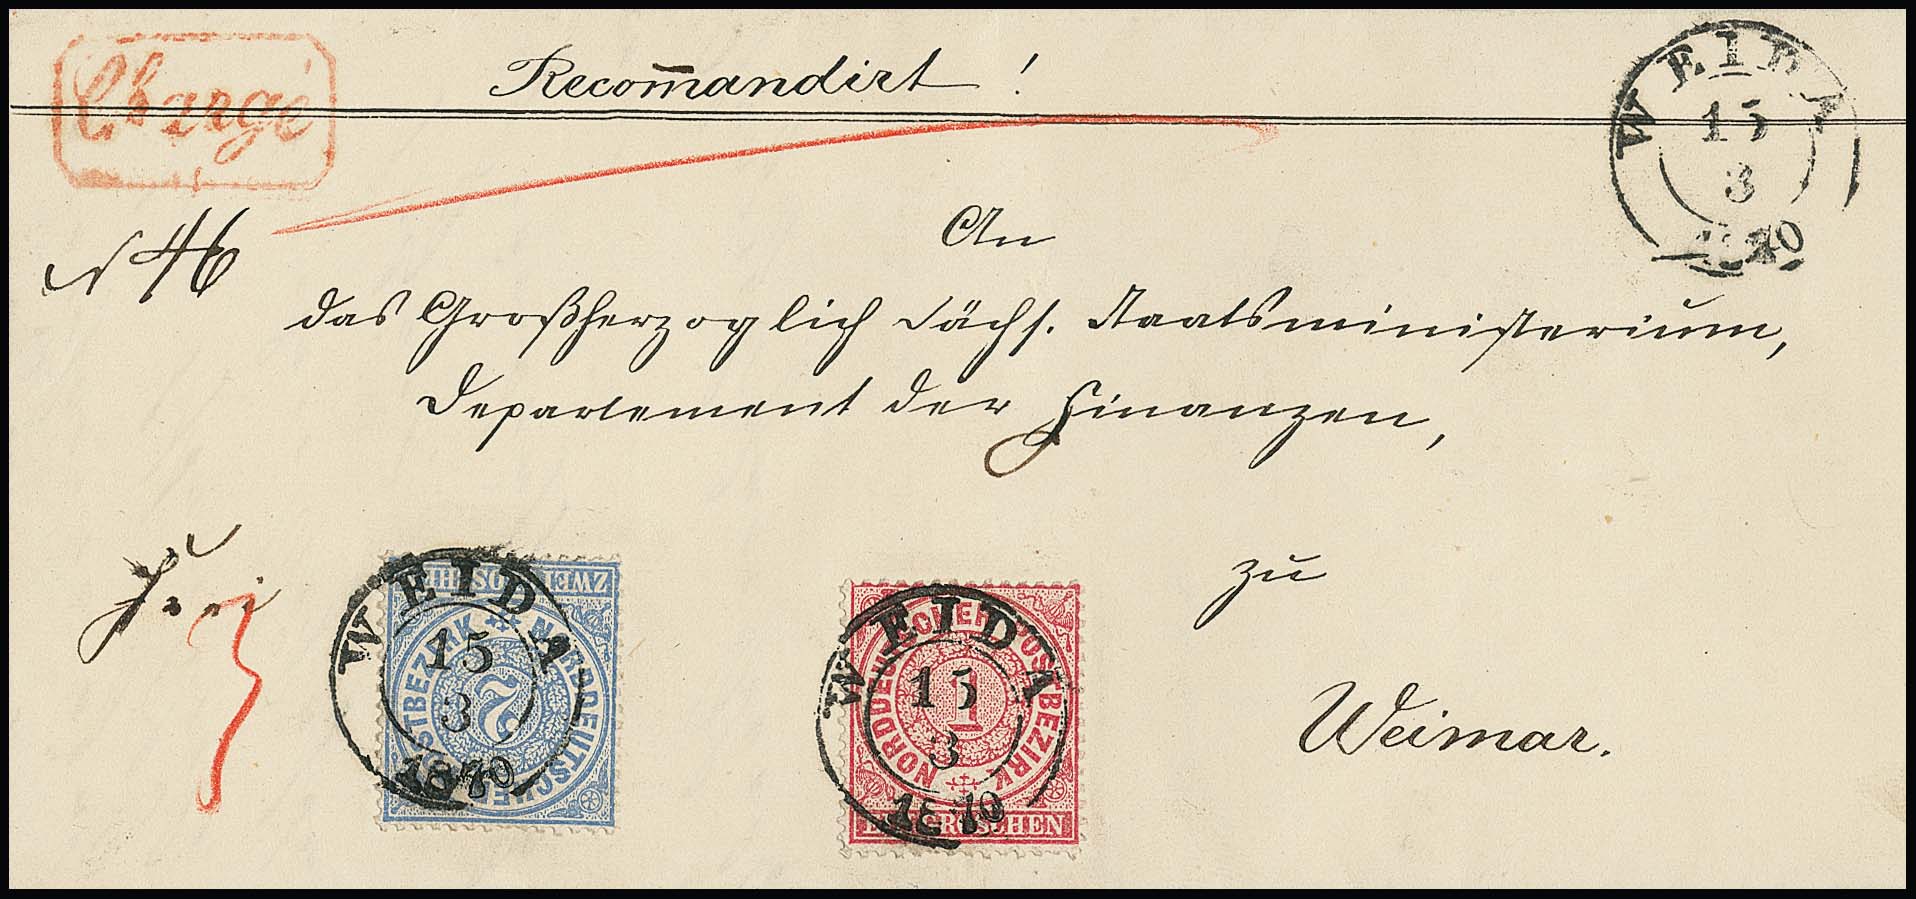 Chargé
Recom̅andirt !
WEIDA
15
3
1870
N 46
An
das Großherzoglich Sächs. Staatsministerium,
Departement der Finanzen,
zu
Weimar.
Frei
3
ZWEI GROSCHEN
NORDDEUTSCHER POSTBEZIRK
2
WEIDA
15
3
1870
NORDDEUTSCHER POSTBEZIRK
1
EIN GROSCHEN
WEIDA
15
3
1870